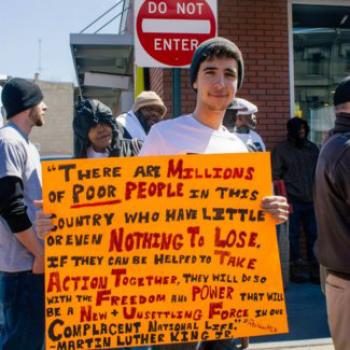 DO NOT
ENTER
"THERE ARE MILLIONS
OF POOR PEOPLE IN THIS
COUNTRY WHO HAVE LITTLE
OR EVEN NOTHING TO LOSE.
IF THEY CAN BE HELPED TO TAKE
ACTION TOGETHER, THEY WILL DO SO
WITH THE FREEDOM AND POWER THAT WILL
BE A NEW + UNSETTLING FORCE IN OUR
COMPLACENT NATIONAL LIFE."
-MARTIN LUTHER KING JR.